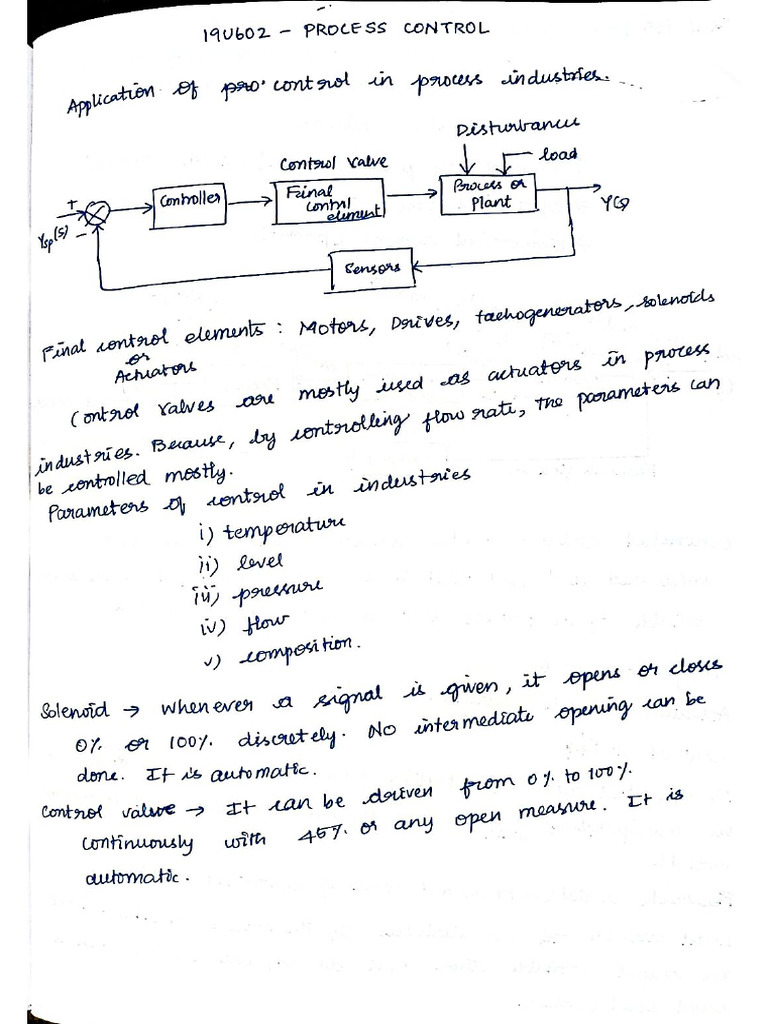 19U602 - PROCESS CONTROL
Application of pro. control in process industries.
Disturbances
load
Control Valve
+
Controller
Final control element
Process or Plant
Ysp(s)
-
Y(s)
Sensors
Final control elements : Motors, Drives, tachogenerators, solenoids
or
Actuators
Control valves are mostly used as actuators in process
industries. Because, by controlling flow rate, the parameters can
be controlled mostly.
Parameters of control in industries
i) temperature
ii) level
iii) pressure
iv) flow
v) composition.
Solenoid → Whenever a signal is given, it opens or closes
0% or 100% discretely. No intermediate opening can be
done. It is automatic.
Control valve → It can be driven from 0% to 100%
continuously with 45% or any open measure. It is
automatic.